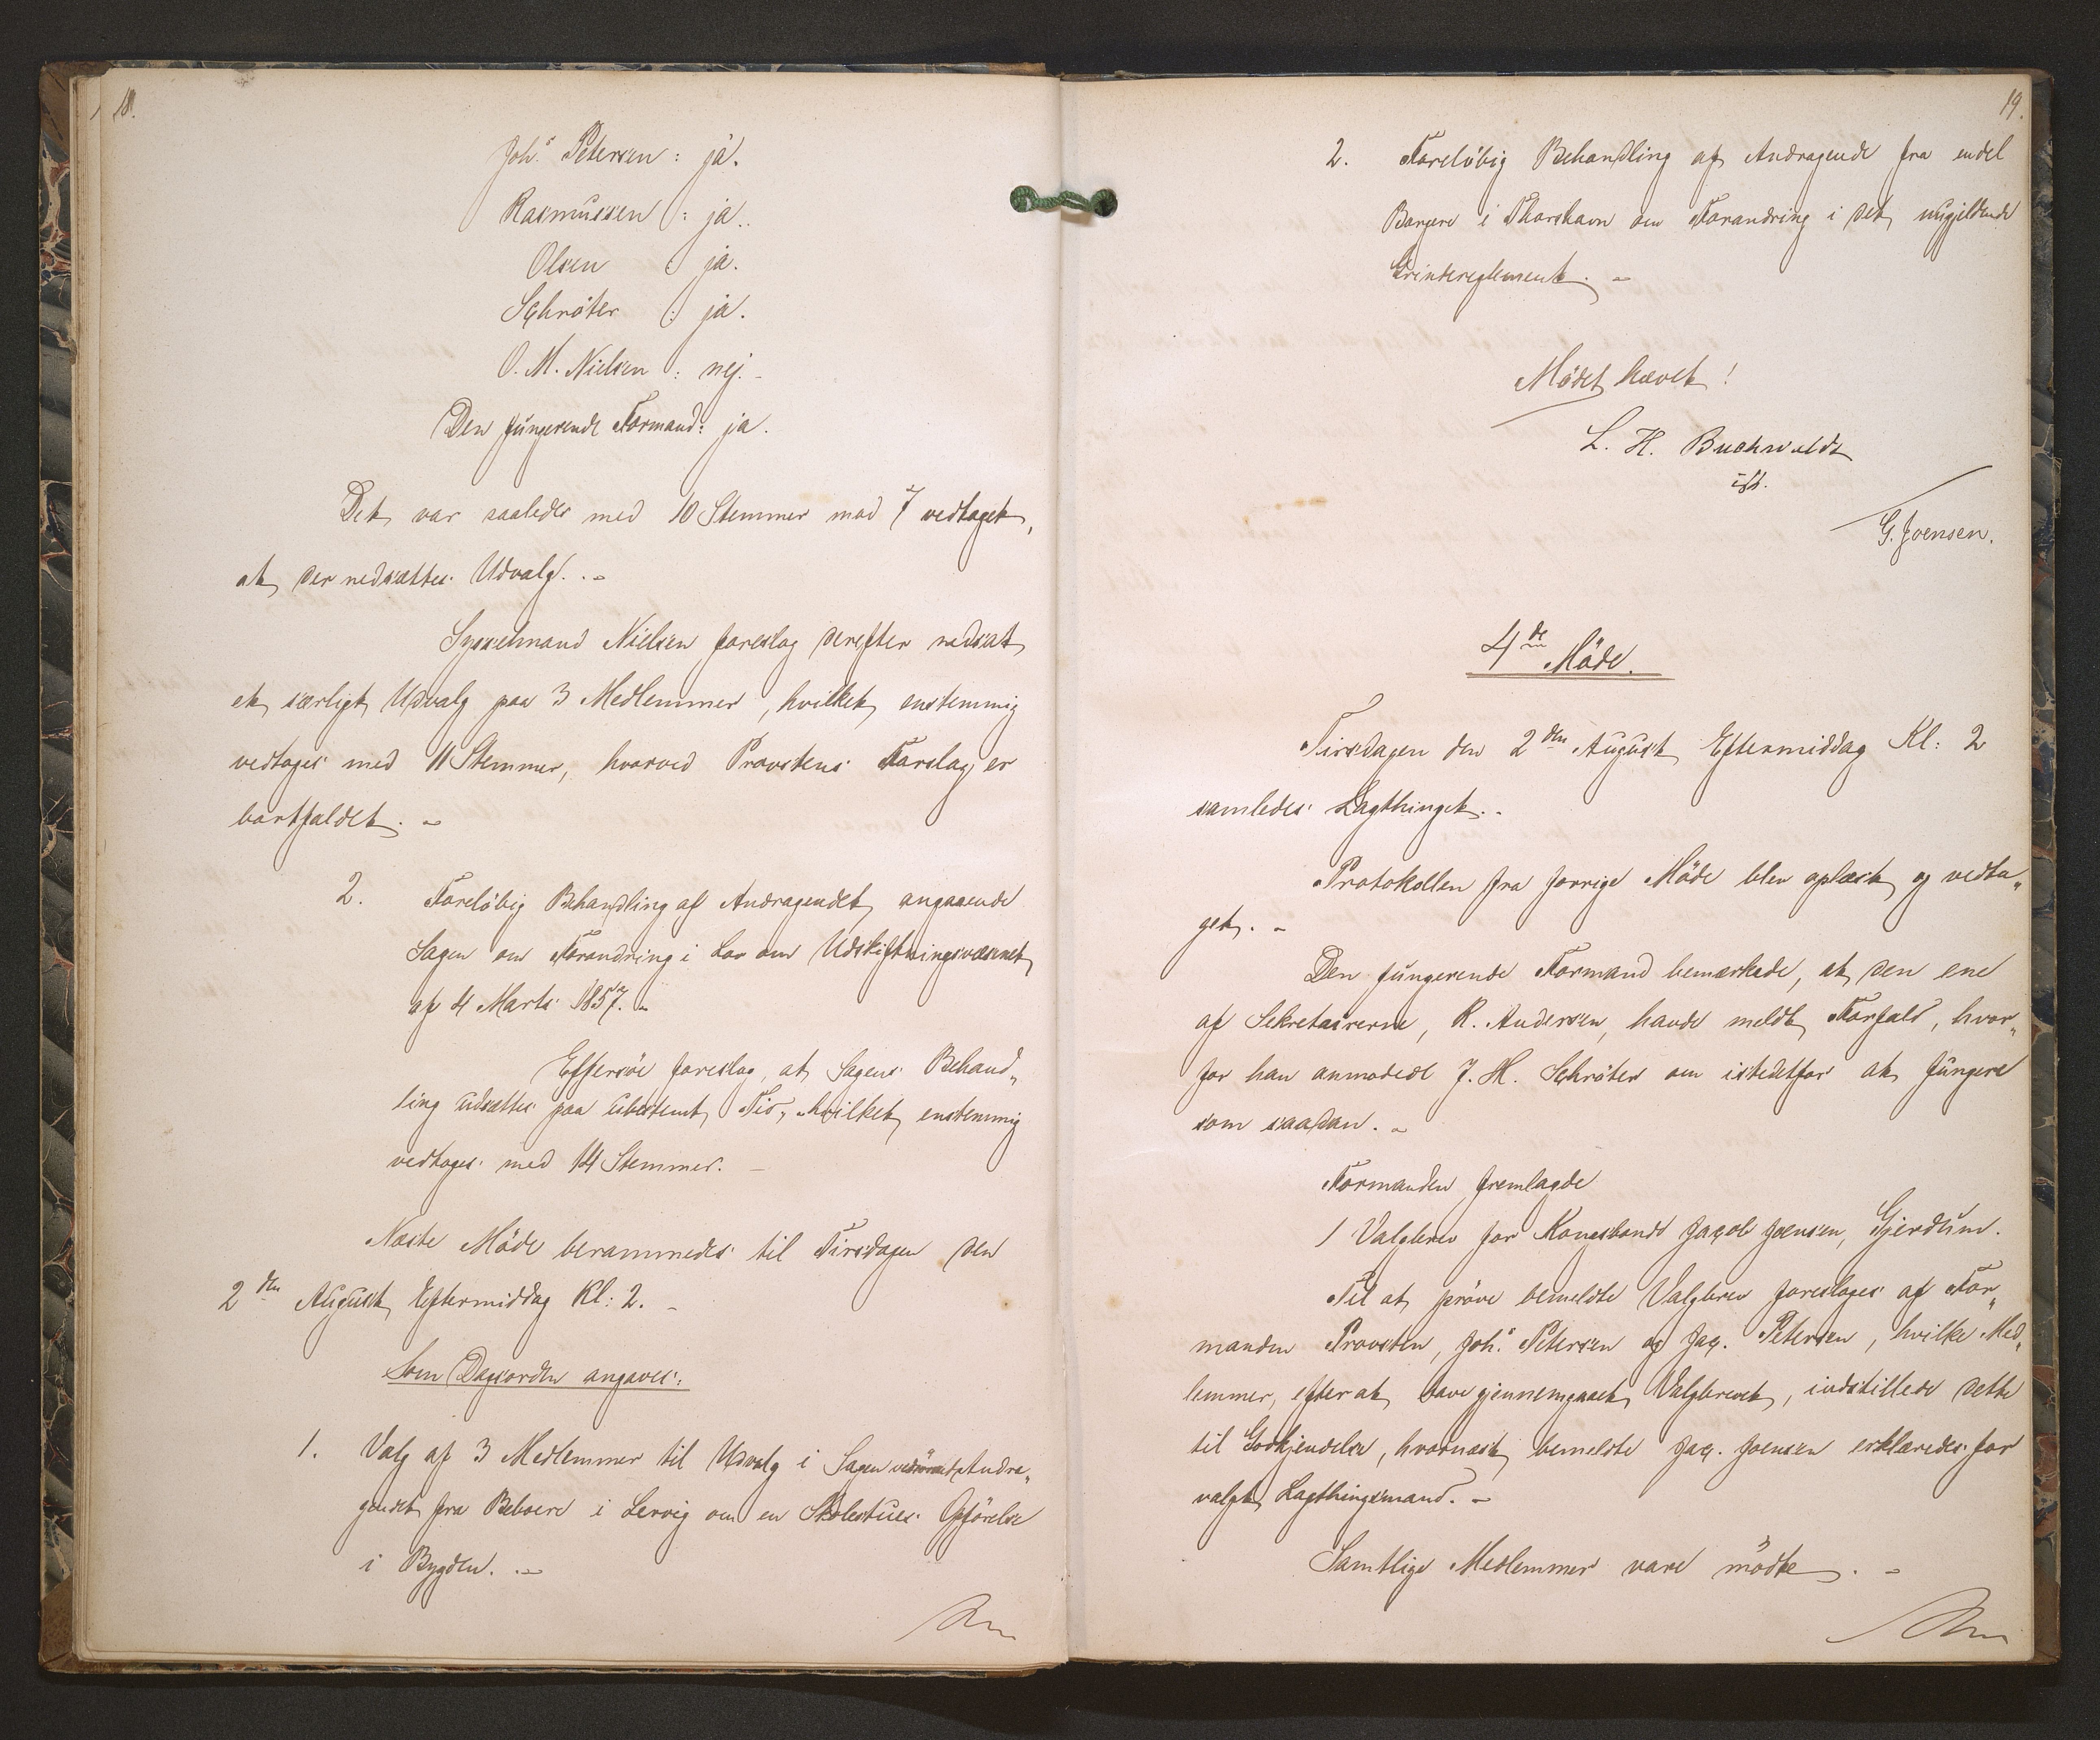 18.
Joh.s Petersen : ja.
Rasmussen : ja..
Olsen : ja.
Schröter : ja.
O. M. Nielsen : nej. -
Den fungerende Formand: ja.
Det var saaledes med 10 Stemmer mod 7 vedtaget,
at der nedsattes Udvalg. . -
Sysselmand Nielsen foreslog derefter nedsat
et særligt Udvalg paa 3 Medlemmer, hvilket enstemmig
vedtoges med 11 Stemmer, hvorved Provstens Forslag er
bortfaldet. -
2. Foreløbig Behandling af Andragendet angaaende
Sagen om Forandring i Lov om Udskiftningsvæsenet
af 4 Marts 1857. -
Effersöe foreslog, at Sagens Behand„
ling udsattes paa ubestemt Tid, hvilket enstemmig
vedtoges med 14 Stemmer. -
Næste Möde berammedes til Tirsdagen den
2 den August Eftermiddag Kl: 2. -
Som Dagsorden angaves:
1. Valg af 3 Medlemmer til Udvalg i Sagen vedrörende Andra„
gendet fra Beboere i Lervig om en Skolestues Opförelse
i Bygden. . -
19.
2. Foreløbig Behandling af Andragende fra endel
Borgere i Thorshavn om Forandring i det nugjeldende
Grindereglement. -
Mödet hævet!
L. H. Buchwaldt
ist.
G. Joensen.
4de Möde.
Tirsdagen den 2 den August Eftermiddag Kl: 2
samledes Lagthinget. -
Protokollen fra forrige Möde blev oplæst og vedta„
get. -
Den fungerende Formand bemærkede, at den ene
af Sekretairerne, R. Andersen, havde meldt Forfald, hvor„
for han anmodede J. H. Schröter om istedetfor at fungere
som saadan. -
Formanden fremlagde
1 Valgbrev for Kongsbonde Jacob Joensen, Gjerdum.
Til at pröve bemeldte Valgbrev foresloges af For„
manden Provsten, Joh.s Petersen og Jac. Petersen, hvilke Med„
lemmer, efter at have gjennemgaaet Valgbrevet, indstillede dette
til Godkjendelse, hvornæst bemeldte Jac. Joensen erklæredes for
valgt Lagthingsmand. -
Samtlige Medlemmer vare mödte. -